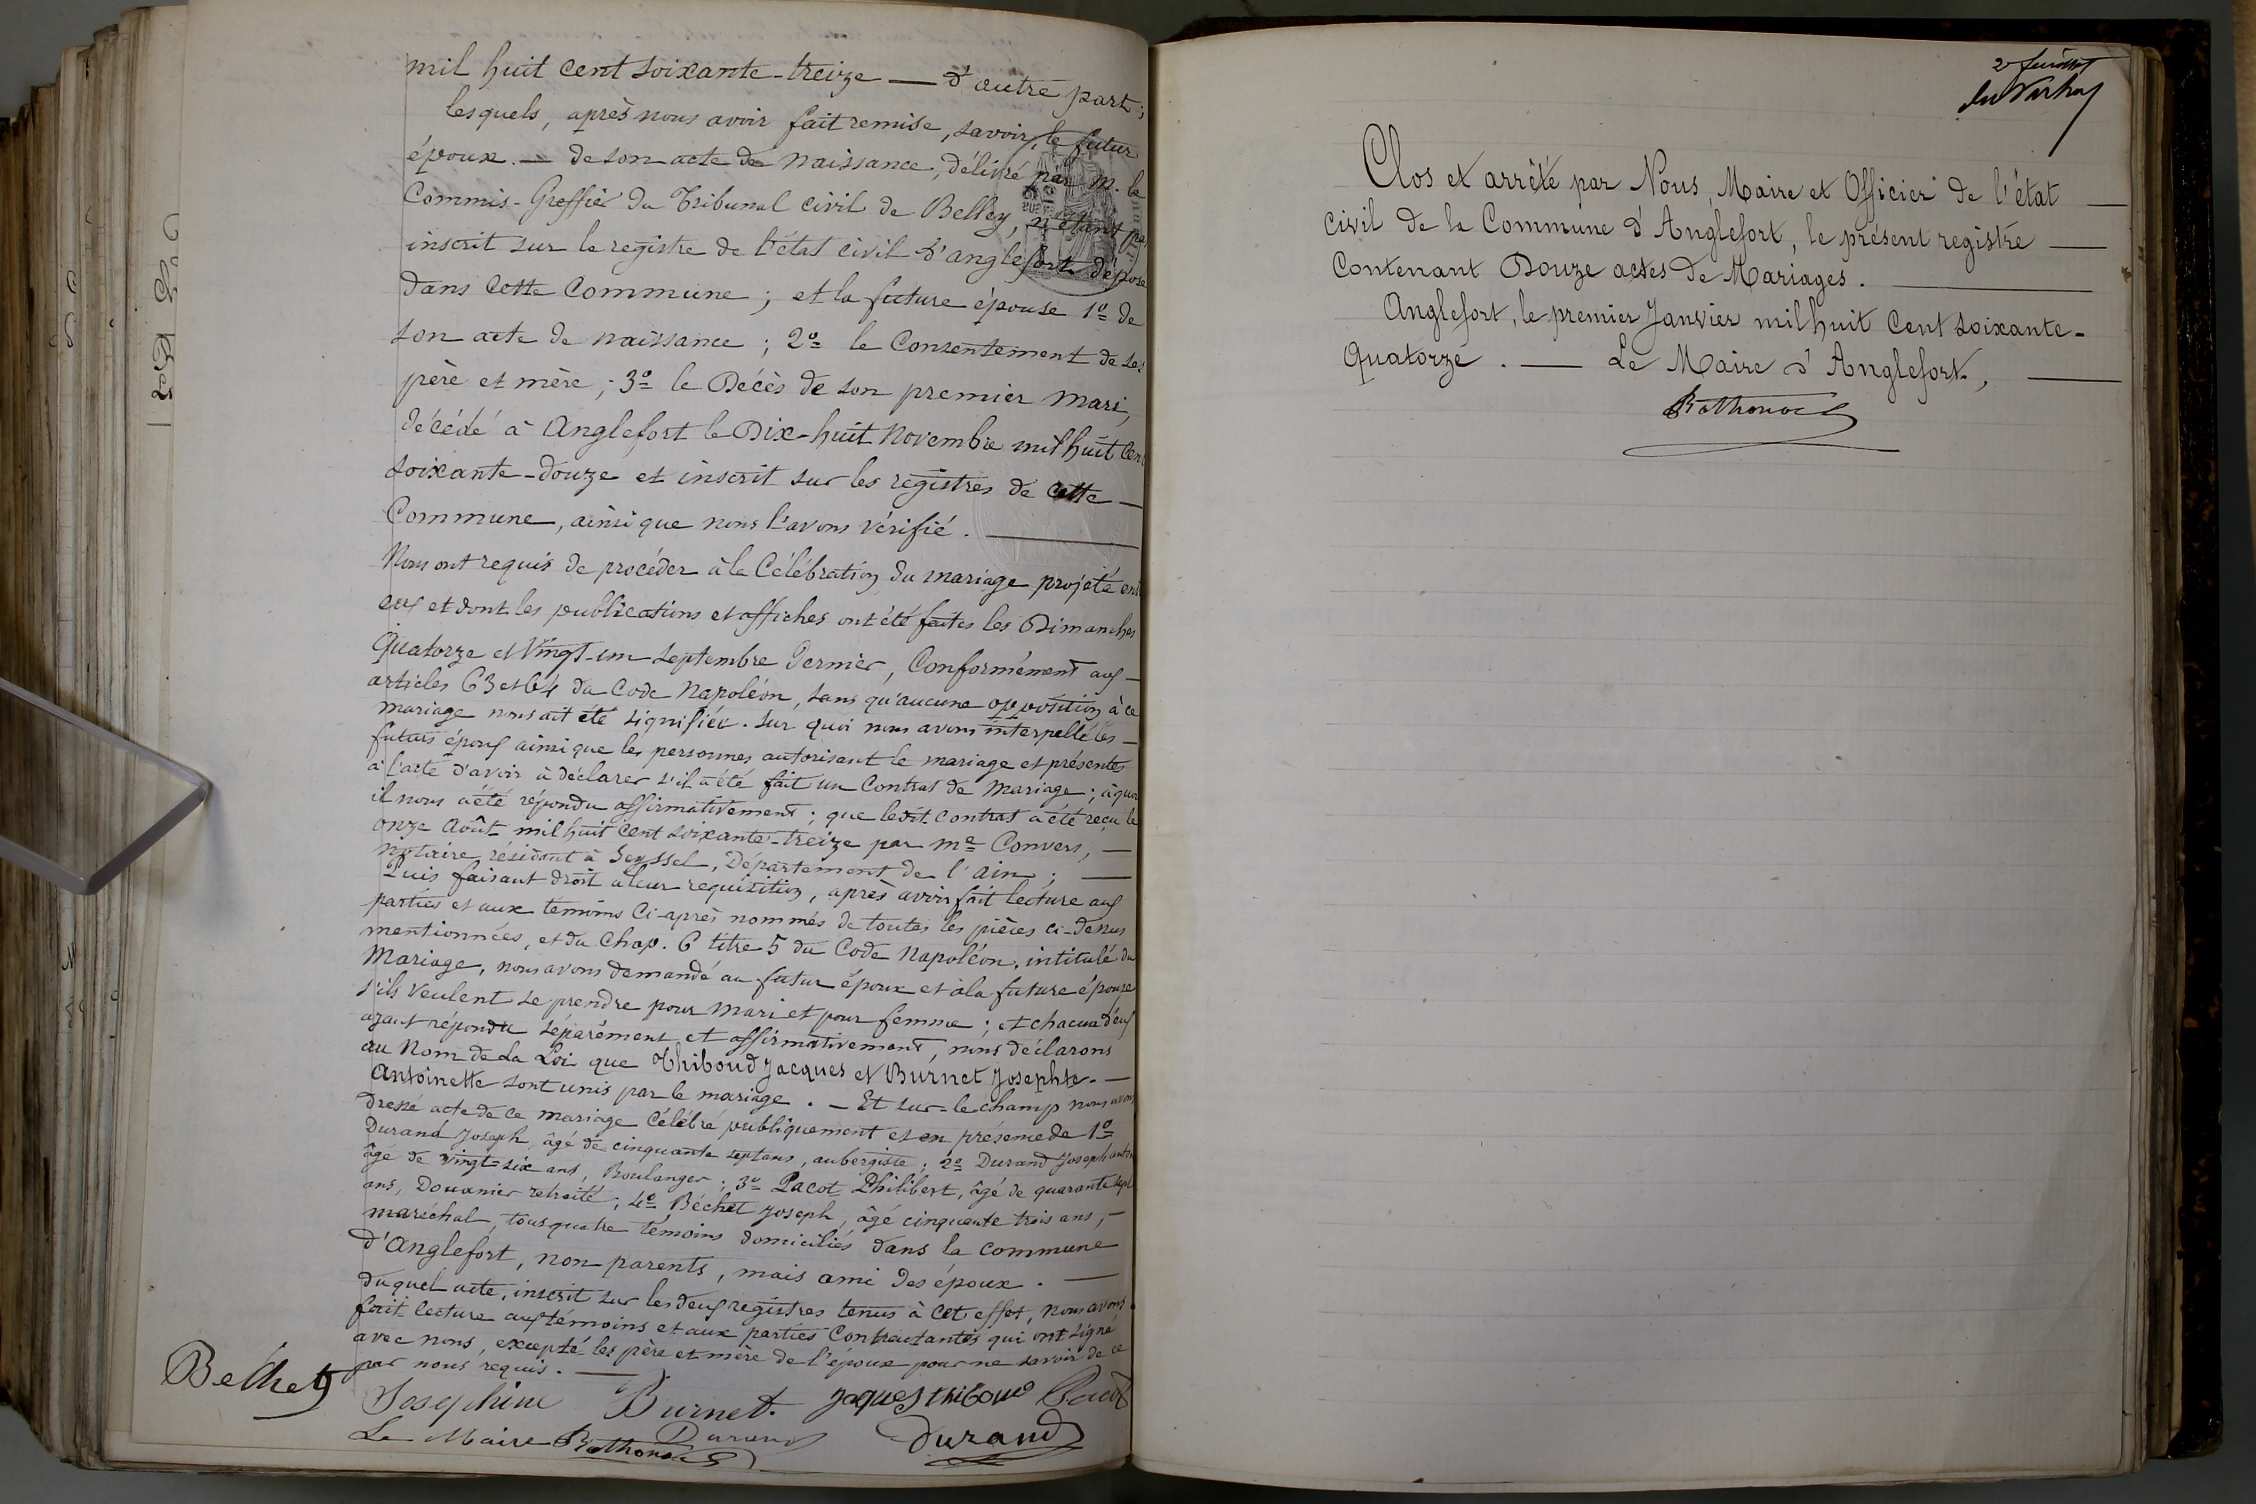 mil huit cent soixante-treize — d'autre part;
lesquels, après nous avoir fait remise, savoir, le futur
époux. — de son acte de naissance, délivré par M. le
Commis-Greffier du Tribunal civil de Belley, n'étant pas
inscrit sur le registre de l'état civil d'anglefort déposé
dans cette Commune ; et la future épouse 1º de
son acte de naissance ; 2º le Consentement de ses
père et mère ; 3º le Décès de son premier mari,
décédé à Anglefort le Dix-huit Novembre mil huit cent
soixante-douze et inscrit sur les registres de cette —
Commune, ainsi que nous l'avons vérifié. —
Nous ont requis de procéder à la Célébration du mariage projeté ent
eux et dont les publications et affiches ont été faites les Dimanches
Quatorze et Vingt-un septembre Dernier, Conformément aux —
articles 63 et 64 du Code Napoléon, sans qu'aucune opposition à ce
mariage nous ait été signifiée. Sur quoi nous avons interpellé les —
futurs époux ainsi que les personnes autorisant le mariage et présentes
à l'acte d'avoir à déclarer s'il a été fait un Contrat de Mariage ; à quoi
il nous a été répondu affirmativement ; que ledit contrat a été reçu le
onze Août mil huit cent soixante-treize par Me Convers, —
notaire résidant à Seyssel, Département de l'ain ; —
Puis faisant droit à leur requisition, après avoir fait lecture aux
parties et aux témoins Ci-après nommés de toutes les pièces ci-dessus
mentionnées, et du Chap. 6 titre 5 du Code Napoléon, intitulé du
Mariage, nous avons demandé au futur époux et à la future épouse
s'ils veulent se prendre pour mari et pour femme ; et chacun d'eux
ayant répondu séparément et affirmativement, nous déclarons
au Nom de La Loi que Thiboud Jacques et Burnet Josephte. —
Antoinette sont unis par le mariage. — Et sur-le champ nous avons
dressé acte de ce mariage célébré publiquement et en présence de 1º
Durand Joseph, âgé de cinquante sept ans, aubergiste ; 2º Durand Joseph
âgé de vingt-six ans, Boulanger ; 3º Pacot Philibert, âgé de quarante sept
ans, Douanier retraité ; 4º Béchet Joseph, âgé cinquante trois ans, —
maréchal, tous quatre témoins domiciliés dans la commune
d'Anglefort, non parents, mais ami des époux. —
duquel acte, inscrit sur les deux registres tenus à cet effet, nous avons
fait lecture aux témoins et aux parties Contractantes qui ont signé
avec nous, excepté les père et mère de l'époux pour ne savoir de ce
par nous requis. —
Béchet Josephine Burnet. Jaques thiboud Pacot
Le Maire Bothonod Durand Durand
2e feuillet
Clos et arrêté par Nous, Maire et Officier de l'état —
civil de la Commune d'Anglefort, le présent registre —
Contenant Douze actes de Mariages. —
Anglefort, le premier Janvier mil huit Cent soixante-
Quatorze. — Le Maire d'Anglefort, —
Bothonod